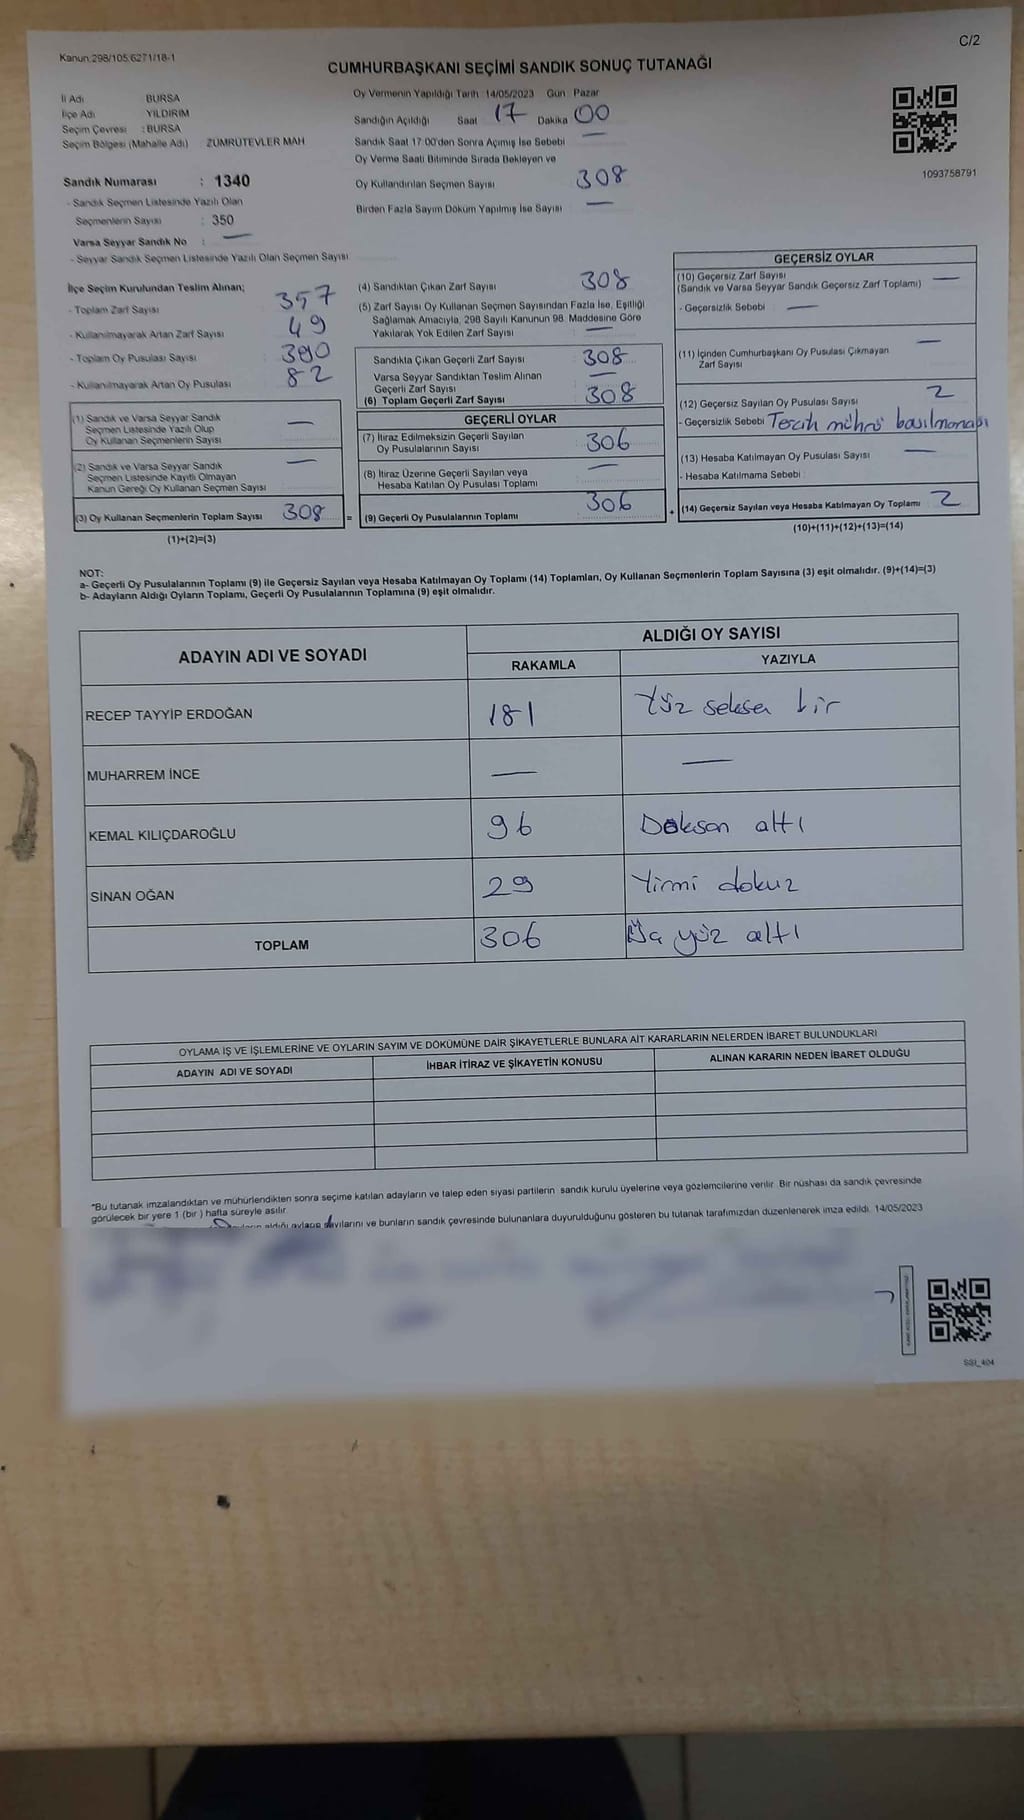 Kanun:298/105;6271/18-1
C/2
CUMHURBAŞKANI SEÇİMİ SANDIK SONUÇ TUTANAĞI
İl Adı BURSA
İlçe Adı YILDIRIM
Seçim Çevresi : BURSA
Seçim Bölgesi (Mahalle Adı) ZÜMRÜTEVLER MAH
Sandık Numarası : 1340
- Sandık Seçmen Listesinde Yazılı Olan
Seçmenlerin Sayısı : 350
Varsa Seyyar Sandık No : —
- Seyyar Sandık Seçmen Listesinde Yazılı Olan Seçmen Sayısı
Oy Vermenin Yapıldığı Tarih 14/05/2023 Gün : Pazar
Sandığın Açıldığı Saat 17 Dakika 00
Sandık Saat 17:00'den Sonra Açımış İse Sebebi —
Oy Verme Saati Bitiminde Sırada Bekleyen ve
Oy Kullandırılan Seçmen Sayısı 308
Birden Fazla Sayım Döküm Yapılmış İse Sayısı —
1093758791
İlçe Seçim Kurulundan Teslim Alınan;
- Toplam Zarf Sayısı 357
- Kullanılmayarak Artan Zarf Sayısı 49
- Toplam Oy Pusulası Sayısı 390
- Kullanılmayarak Artan Oy Pusulası 82
(1) Sandık ve Varsa Seyyar Sandık
Seçmen Listesinde Yazılı Olup
Oy Kullanan Seçmenlerin Sayısı —
(2) Sandık ve Varsa Seyyar Sandık
Seçmen Listesinde Kayıtlı Olmayan
Kanun Gereği Oy Kullanan Seçmen Sayısı —
(3) Oy Kullanan Seçmenlerin Toplam Sayısı 308 =
(1)+(2)=(3)
(4) Sandıktan Çıkan Zarf Sayısı 308
(5) Zarf Sayısı Oy Kullanan Seçmen Sayısından Fazla İse, Eşitliği
Sağlamak Amacıyla, 298 Sayılı Kanunun 98. Maddesine Göre
Yakılarak Yok Edilen Zarf Sayısı —
Sandıkta Çıkan Geçerli Zarf Sayısı 308
Varsa Seyyar Sandıktan Teslim Alınan
Geçerli Zarf Sayısı —
(6) Toplam Geçerli Zarf Sayısı 308
GEÇERLİ OYLAR
(7) İtiraz Edilmeksizin Geçerli Sayılan
Oy Pusulalarının Sayısı 306
(8) İtiraz Üzerine Geçerli Sayılan veya
Hesaba Katılan Oy Pusulası Toplamı —
(9) Geçerli Oy Pusulalarının Toplamı 306 +
GEÇERSİZ OYLAR
(10) Geçersiz Zarf Sayısı —
(Sandık ve Varsa Seyyar Sandık Geçersiz Zarf Toplamı)
- Geçersizlik Sebebi : —
(11) İçinden Cumhurbaşkanı Oy Pusulası Çıkmayan
Zarf Sayısı —
(12) Geçersiz Sayılan Oy Pusulası Sayısı 2
- Geçersizlik Sebebi Tercih mührü basılmaması
(13) Hesaba Katılmayan Oy Pusulası Sayısı —
- Hesaba Katılmama Sebebi :
(14) Geçersiz Sayılan veya Hesaba Katılmayan Oy Toplamı 2
(10)+(11)+(12)+(13)=(14)
NOT:
a- Geçerli Oy Pusulalarının Toplamı (9) ile Geçersiz Sayılan veya Hesaba Katılmayan Oy Toplamı (14) Toplamları, Oy Kullanan Seçmenlerin Toplam Sayısına (3) eşit olmalıdır. (9)+(14)=(3)
b- Adayların Aldığı Oyların Toplamı, Geçerli Oy Pusulalarının Toplamına (9) eşit olmalıdır.
ADAYIN ADI VE SOYADI ALDIĞI OY SAYISI
RAKAMLA YAZIYLA
RECEP TAYYİP ERDOĞAN 181 Yüz seksen bir
MUHARREM İNCE — —
KEMAL KILIÇDAROĞLU 96 Doksan altı
SİNAN OĞAN 29 Yirmi dokuz
TOPLAM 306 Üç yüz altı
OYLAMA İŞ VE İŞLEMLERİNE VE OYLARIN SAYIM VE DÖKÜMÜNE DAİR ŞİKAYETLERLE BUNLARA AİT KARARLARIN NELERDEN İBARET BULUNDUKLARI
ADAYIN ADI VE SOYADI İHBAR İTİRAZ VE ŞİKAYETİN KONUSU ALINAN KARARIN NEDEN İBARET OLDUĞU
*Bu tutanak imzalandıktan ve mühürlendikten sonra seçime katılan adayların ve talep eden siyasi partilerin sandık kurulu üyelerine veya gözlemcilerine verilir. Bir nüshası da sandık çevresinde
görülecek bir yere 1 (bir ) hafta süreyle asılır.
aldığı oyların sayılarını ve bunların sandık çevresinde bulunanlara duyurulduğunu gösteren bu tutanak tarafımızdan düzenlenerek imza edildi. 14/05/2023
SSI_404